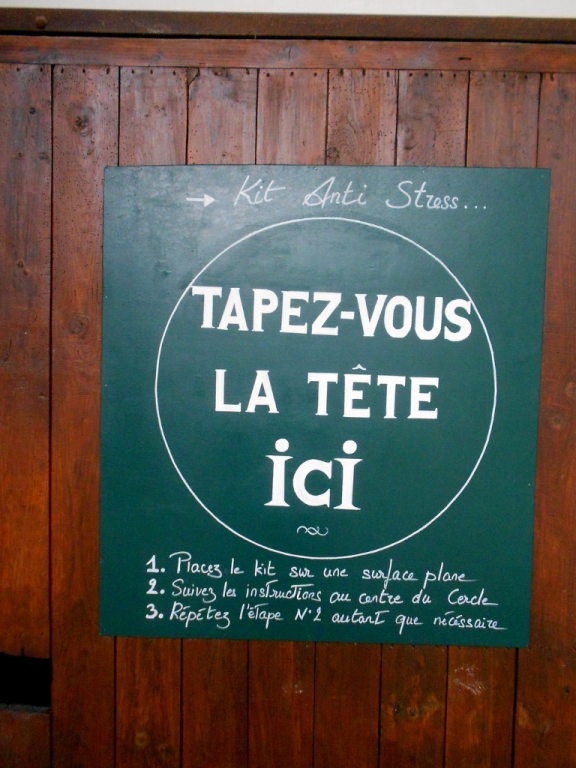 → Kit Anti Stress...
TAPEZ-VOUS
LA TÊTE
ici
1. Placez le kit sur une surface plane
2. Suivez les instructions au centre du Cercle
3. Répétez l'étape N°2 autant que nécéssaire